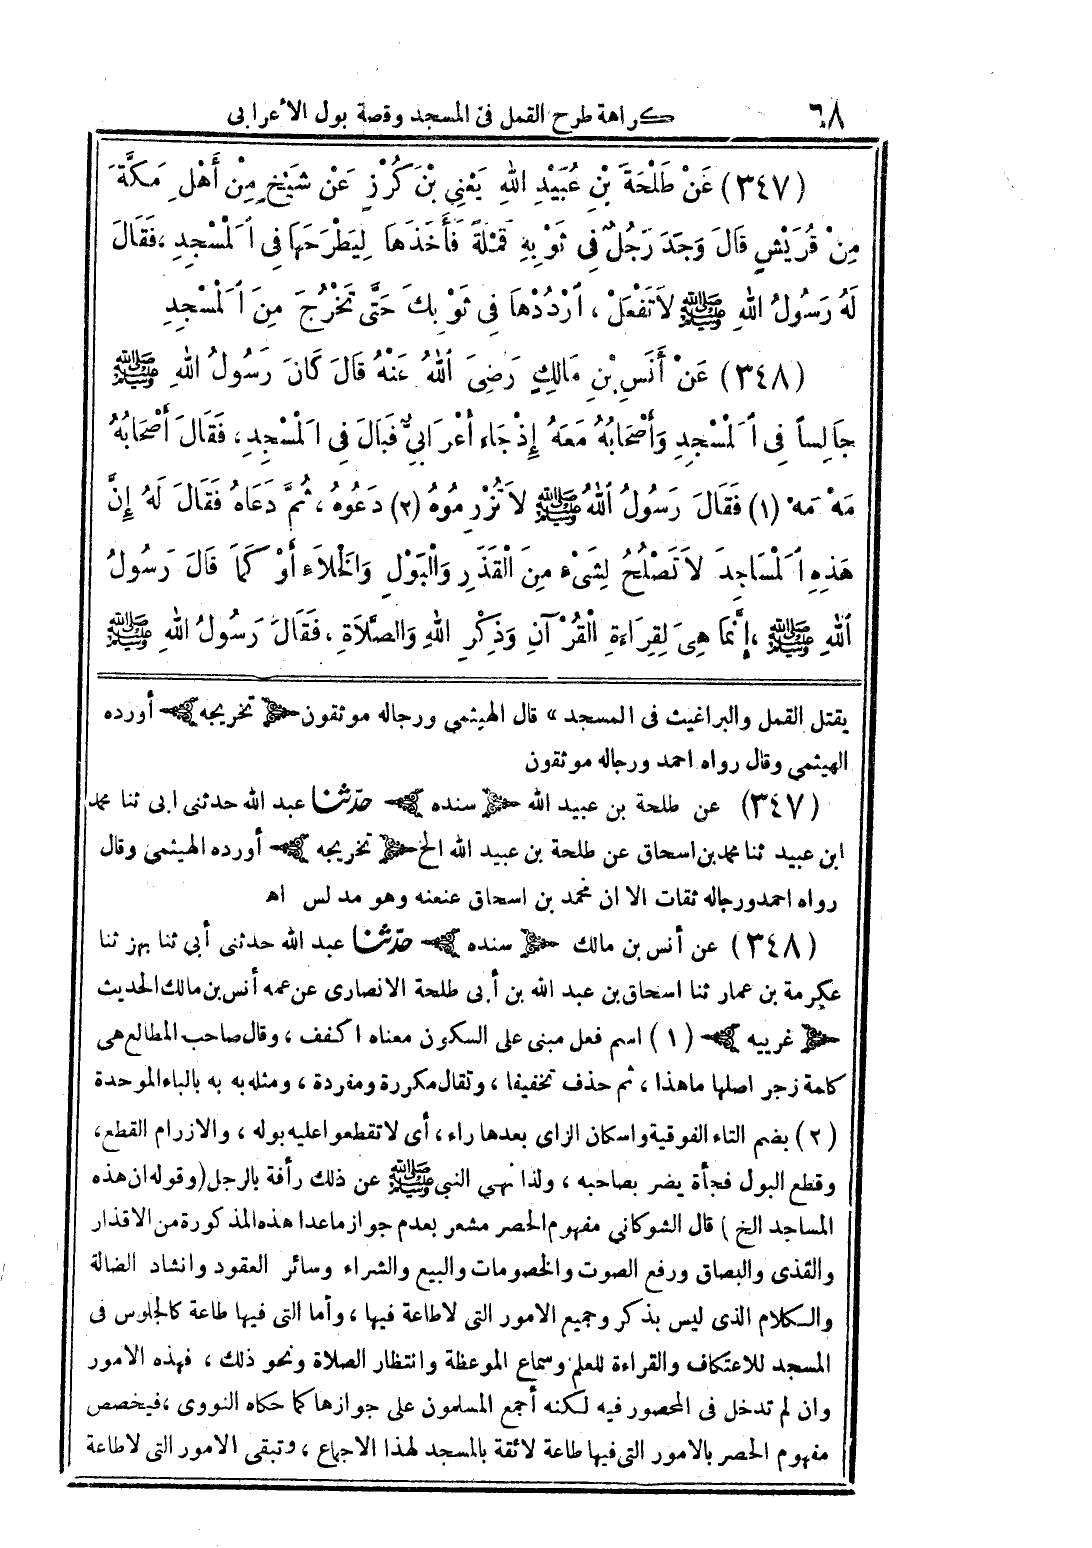 ٦٨ كراهة طرح القمل فى المسجد وقصة بول الأعرابى
(٣٤٧) عَنْ طَلْحَةَ بْنِ عُبَيْدِ اللهِ يَعْنِي بْنَ كُرْزٍ عَنْ شَيْخٍ مِنْ أَهْلِ مَكَّةَ
مِنْ قُرَيْشٍ قَالَ وَجَدَ رَجُلٌ فِي ثَوْبِهِ قَمْلَةً فَأَخَذَهَا لِيَطْرَحَهَا فِى الْمَسْجِدِ ، فَقَالَ
لَهُ رَسُولُ اللهِ ﷺ لَا تَفْعَلْ ، ارْدُدْهَا فِى ثَوْبِكَ حَتَّى تَخْرُجَ مِنَ الْمَسْجِدِ
(٣٤٨) عَنْ أَنَسِ بْنِ مَالِكٍ رَضِىَ اللهُ عَنْهُ قَالَ كَانَ رَسُولُ اللهِ ﷺ
جَالِساً فِى الْمَسْجِدِ وَأَصْحَابُهُ مَعَهُ إِذْ جَاءَ أَعْرَابِيٌّ فَبَالَ فِى الْمَسْجِدِ ، فَقَالَ أَصْحَابُهُ
مَهْ مَهْ (١) فَقَالَ رَسُولُ اللهُ ﷺ لَا تُزْرِمُوهُ (٢) دَعُوهُ ، ثُمَّ دَعَاهُ فَقَالَ لَهُ إِنَّ
هَذِهِ الْمَسَاجِدَ لَا تَصْلُحُ لِشَىْءٍ مِنَ الْقَذَرِ وَالْبَوْلِ وَالْخَلَاءِ أَوْ كَمَا قَالَ رَسُولُ
اللهِ ﷺ ، إِنَّمَا هِىَ لِقِرَاءَةِ الْقُرْآنِ وَذِكْرِ اللهِ وَالصَّلَاةِ ، فَقَالَ رَسُولُ اللهِ ﷺ
يقتل القمل والبراغيث فى المسجد » قال الهيثمي ورجاله موثقون ﴿ تخريجه ﴾ أورده
الهيثمي وقال رواه احمد ورجاله موثقون
(٣٤٧) عن طلحة بن عبيد الله ﴿ سنده ﴾ حدّثنا عبد الله حدثنى ابى ثنا محمد
ابن عبيد ثنا محمد بن اسحاق عن طلحة بن عبيد الله الخ ﴿ تخريجه ﴾ أورده الهيثمى وقال
رواه احمد ورجاله ثقات الا ان محمد بن اسحاق عنعنه وهو مدلس اهـ
(٣٤٨) عن أنس بن مالك ﴿ سنده ﴾ حدّثنا عبد الله حدثنى أبى ثنا بهز ثنا
عكرمة بن عمار ثنا اسحاق بن عبد الله بن أبى طلحة الانصارى عن عمه أنس بن مالك الحديث
﴿ غريبه ﴾ (١) اسم فعل مبنى على السكون معناه اكفف ، وقال صاحب المطالع هى
كلمة زجر اصلها ما هذا ، ثم حذف تخفيفا ، وتقال مكررة ومفردة ، ومثله به به بالباء الموحدة
(٢) بضم التاء الفوقية واسكان الزاى بعدها راء ، أى لا تقطعوا عليه بوله ، والازرام القطع ،
وقطع البول فجأة يضر بصاحبه ، ولذا نهي النبي ﷺ عن ذلك رأفة بالرجل (وقوله ان هذه
المساجد الخ ) قال الشوكاني مفهوم الحصر مشعر بعدم جواز ما عدا هذه المذكورة من الاقذار
والقذى والبصاق ورفع الصوت والخصومات والبيع والشراء وسائر العقود وانشاد الضالة
والكلام الذى ليس بذكر وجميع الامور التى لا طاعة فيها ، وأما التى فيها طاعة كالجلوس فى
المسجد للاعتكاف والقراءة للعلم وسماع الموعظة وانتظار الصلاة ونحو ذلك ، فهذه الامور
وان لم تدخل فى المحصور فيه لكنه أجمع المسلمون على جوازها كما حكاه النووى ، فيخصص
مفهوم الحصر بالامور التى فيها طاعة لائقة بالمسجد لهذا الاجماع ، وتبقى الامور التى لا طاعة